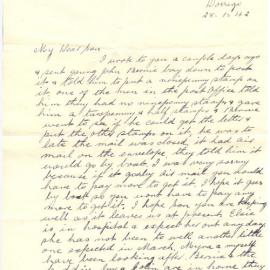 Dorrigo
My Dear son
I wrote to you a couple days ago
& sent young John Bernie boy down to post
it & told him to put a ninepenny stamp on
it, one of the men in the post Office told
him they had no ninepenny stamps & gave
him a twopenny & half stamps & Bernie
went to see if he could get the letter &
put the other stamps on it, he was to
late the mail was closed. it had air
mail on the envelope they told him it
would go by boat. I was very sorry
because if it goes by air mail you should
have to pay more to get it. I hope it goes
by boat so you wont have to pay any
more to get it. I hope son you are keeping
well as it leaves us at present. Elsie
is in hospital & expect her out any day
she has not been to well another little
one expected in March. & myself
have been looking after Bernie & the
are in home they